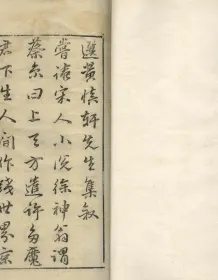 選黃慎軒先生集叙
嘗讀宋人小説徐神翁謂
蔡京曰上天方遣許多魔
君下生人間作壞世界京